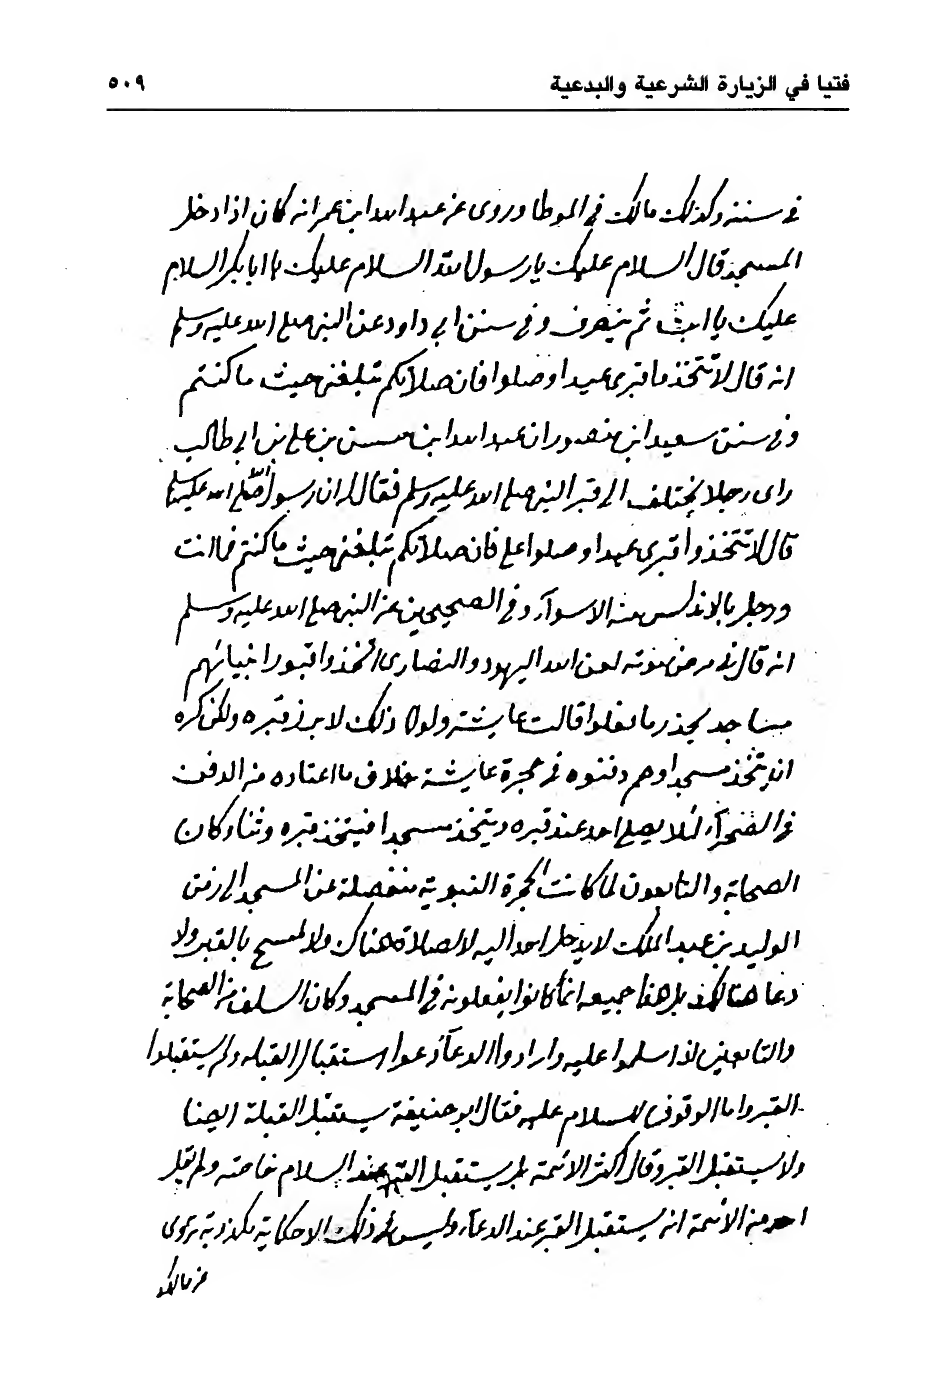 فتيا في الزيارة الشرعية والبدعية ٥٠٩
في سننه وكذلك مالك في الموطا وروى عن عبد الله ابن عمر انه كان اذا دخل
المسجد قال السلام عليك يا رسول الله السلام عليك يا ابا بكر السلام
عليك يا ابت ثم ينصرف وفي سنن ابي داود عن النبي صلى الله عليه وسلم
انه قال لا تتخذوا قبري عيدا وصلوا فان صلاتكم تبلغني حيث ما كنتم
وفي سنن سعيد ابن منصور ان عبد الله ابن حسن بن علي بن ابي طالب
راى رجلا يختلف الى قبر النبي صلى الله عليه وسلم فقال له ان رسول الله صلى الله عليه وسلم
قال لا تتخذوا قبري عيدا وصلوا علي فان صلاتكم تبلغني حيث ما كنتم فما انت
ورجل بالاندلس منه الا سوآء وفي الصحيحين عن النبي صلى الله عليه وسلم
انه قال في مرض موته لعن الله اليهود والنصارى اتخذوا قبور انبيائهم
مساجد يحذر ما فعلوا قالت عايشة ولولا ذلك لابرز قبره ولكن كره
ان يتخذ مسجدا وهم دفنوه في حجرة عايشة خلاف ما اعتاده من الدفن
في الصحرآء لئلا يصلي احد عند قبره ويتخذ مسجدا فيتخذ قبره وثنا وكان
الصحابة والتابعون لما كانت الحجرة النبوية منفصلة عن المسجد الى زمن
الوليد بن عبد الملك لا يدخل احد اليه لا لصلاة هناك ولا لمسح بالقبر ولا
دعا هنالك بل هذا جميعه انما كانوا يفعلونه في المسجد وكان السلف من الصحابة
والتابعين اذا سلموا عليه وارادوا الدعآء دعوا استقبال القبله ولم يستقبلوا
القبر واما الوقوف للسلام عليه فقال ابو حنيفة يستقبل القبلة ايضا
ولا يستقبل القبر وقال اكثر الائمة بل يستقبل القبر عند السلام خاصه ولم يقل
احد من الائمة انه يستقبل القبر عند الدعآء وليس في ذلك الا حكاية مكذوبة تروى
عن مالك